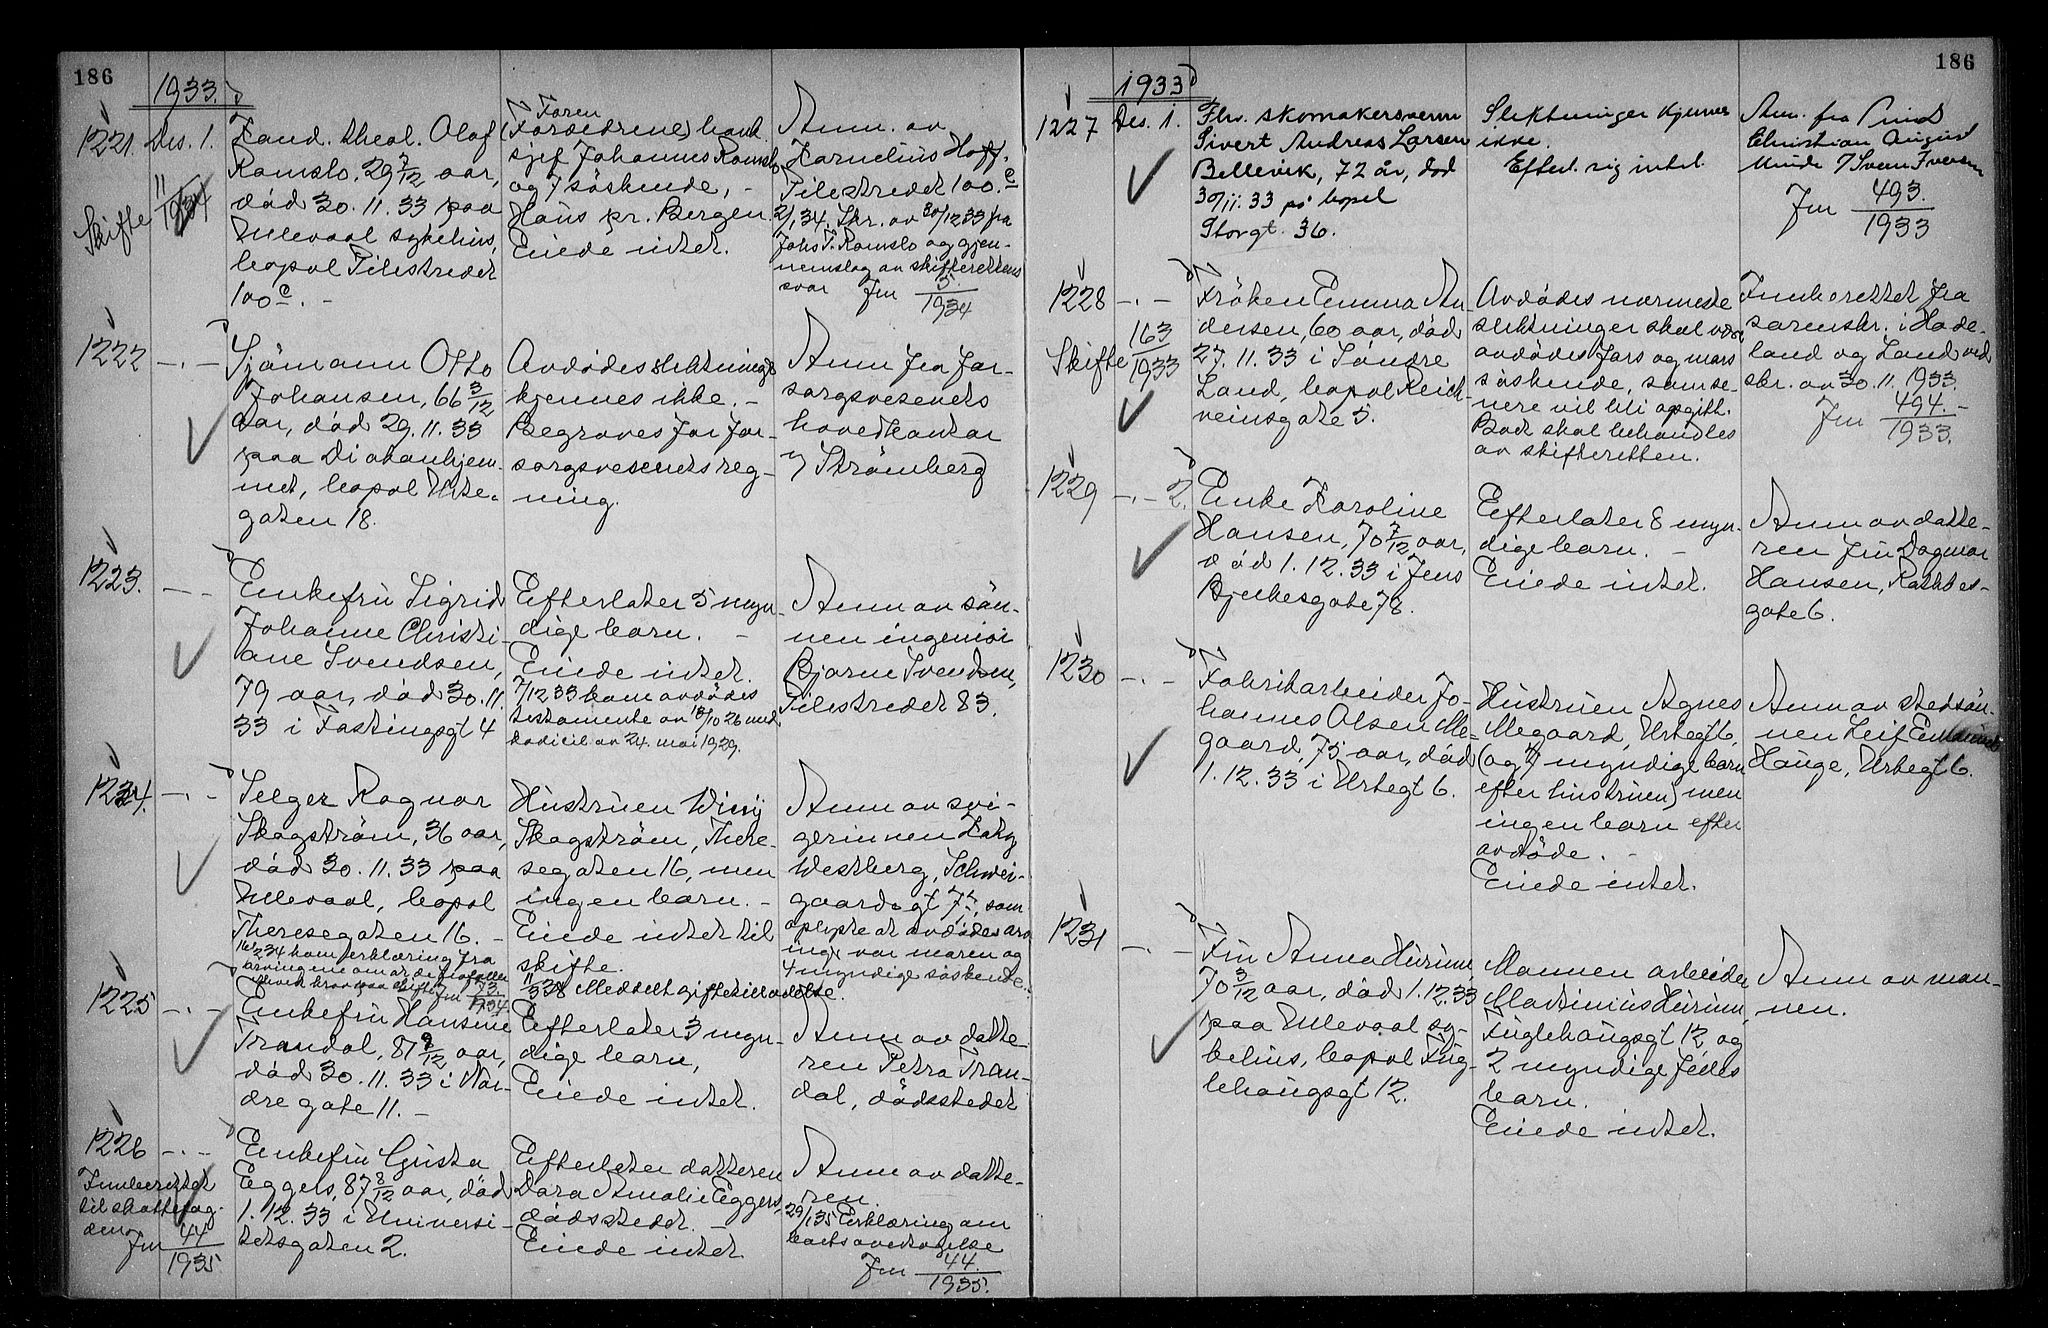 186
1933.
1221. Des. 1.
Skifte 11/1934
Kand. theol. Olaf
Romslo, 29 7/12 aar,
död 30.11.33 paa
Ullevaal sykehus,
bopæl Pilestredet
100 c. -
Faren
(Forældrene) bank
sjef Johannes Romslo
og 7 söskende, -
Haus pr. Bergen.
Eiede intet.
Anm. av
Kornelius Hoff.
Pilestredet 100 c
2/1 34. Skr. av 30/12 33 fra
Johs T. Romslo og gjen-
nemslag av skifterettens
svar Jnr 5/1934
1222 -.-
Sjömann Otto
Johansen, 66 3/12
aar, död 29.11.33
paa Diakonhjem-
met, bopæl Urte-
gaten 18.
Avdödes slektninger
kjennes ikke. -
Begraves for for-
sorgsvesenets reg-
ning.
Anm fra for-
sorgsvesenets
hovedkontor
v/ Strömberg
1223. -.-
Enkefru Sigrid
Johanne Christi-
ane Svendsen,
79 aar, död 30.11.
33 i Fastingsgt 4
Efterlater 5 myn-
dige barn. -
Eiede intet.
7/12 33 kom avdödes
testamente av 18/10 26 med
kodicil av 24. mai 1929.
Anm av sön-
nen ingeniör
Bjarne Svendsen,
Pilestredet 83.
1224. -.-
Selger Ragnar
Skogström, 36 aar,
död 30.11.33 paa
Ullevaal, bopæl
Theresegaten 16. -
16/2 34 kom erklæring fra
arvingene om at de frafaller
ethvert krav paa skifte Jnr 73/1934
Hustruen Wivij
Skogström, There-
segaten 16, men
ingen barn. -
Eiede intet til
skifte.
Anm av svi-
gerinnen Kathy
Westberg, Schwei-
gaardsgt 77, som
oplyste at avdödes arv-
inger var moren og
4 myndige söskende.
1225 -.-
Enkefru Hansine
Trandal, 87 9/12 aar,
död 30.11.33 i Nor-
dre gate 11. -
Efterlater 3 myn-
dige barn,
Eiede intet.
Anm av datte-
ren Petra Tran-
dal, dödsstedet
1226 -.-
Innberettet
til skattefog-
den Jnr 44/1935
Enkefru Gusta
Eggers, 87 8/12 aar, död
1.12.33 i Universi-
tetsgaten 2.
Efterlater datteren
Dora Amalie Eggers,
dödsstedet. -
Eiede intet
Anm av datte-
ren.
29/1 35 Erklæring om
boets overtagelse
Jnr 44/1935.
186
1933
1227 Des. 1.
Fhv. skomakersvenn
Sivert Andreas Larsen
Bellevik, 72 år, död
30/11.33 på bopel
Storgt. 36.
Slektninger kjennes
ikke.
Efterl. sig intet.
Anm. fra
Christian August
Munde v/Svein Iversen
Jnr 493./1933
1228 -.-
Skifte 163/1933
Fröken Emma An-
dersen, 60 aar, död
27.11.33 i Söndre
Land, bopæl Reich-
weinsgate 5.
Avdödes nærmeste
slektninger skal være
avdödes fars og mors
söskende, som se-
nere vil bli opgitt.
Boet skal behandles
av skifteretten.
Innberettet fra
sorenskr. i Hade-
land og Land ved
skr. av 30.11.1933.
Jnr 494./1933.
1229 -.- 2.
Enke Karoline
Hansen, 70 7/12 aar,
död 1.12.33 i Jens
Bjelkesgate 78.
Efterlater 8 myn-
dige barn. -
Eiede intet.
Anm av datte-
ren frk Dagmar
Hansen, Rathkes-
gate 6.
1230 -.-
Fabrikarbeider Jo-
hannes Olsen Me-
gaard, 75 aar, död
1.12.33 i Urtegt 6.
Hustruen Agnes
Megaard, Urtegt 6,
(og 7 myndige barn
efter hustruen) men
ingen barn efter
avdöde. -
Eiede intet.
Anm av stedsön-
nen Leif
Hauge, Urtegt 6.
1231 -.-
Fru Anna Hurum
70 3/12 aar, död 1.12.33
paa Ullevaal sy-
kehus, bopæl Fug-
lehaugsgt 12.
Mannen arbeider
Martinius Hurum,
Fuglehaugsgt 12 og
2 myndige fælles
barn.
Eiede intet.
Anm av man-
nen.